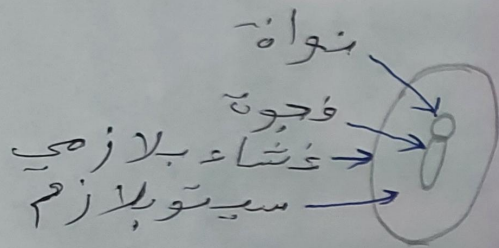 نواة
فجوة
غشاء بلازمي
سيتوبلازم